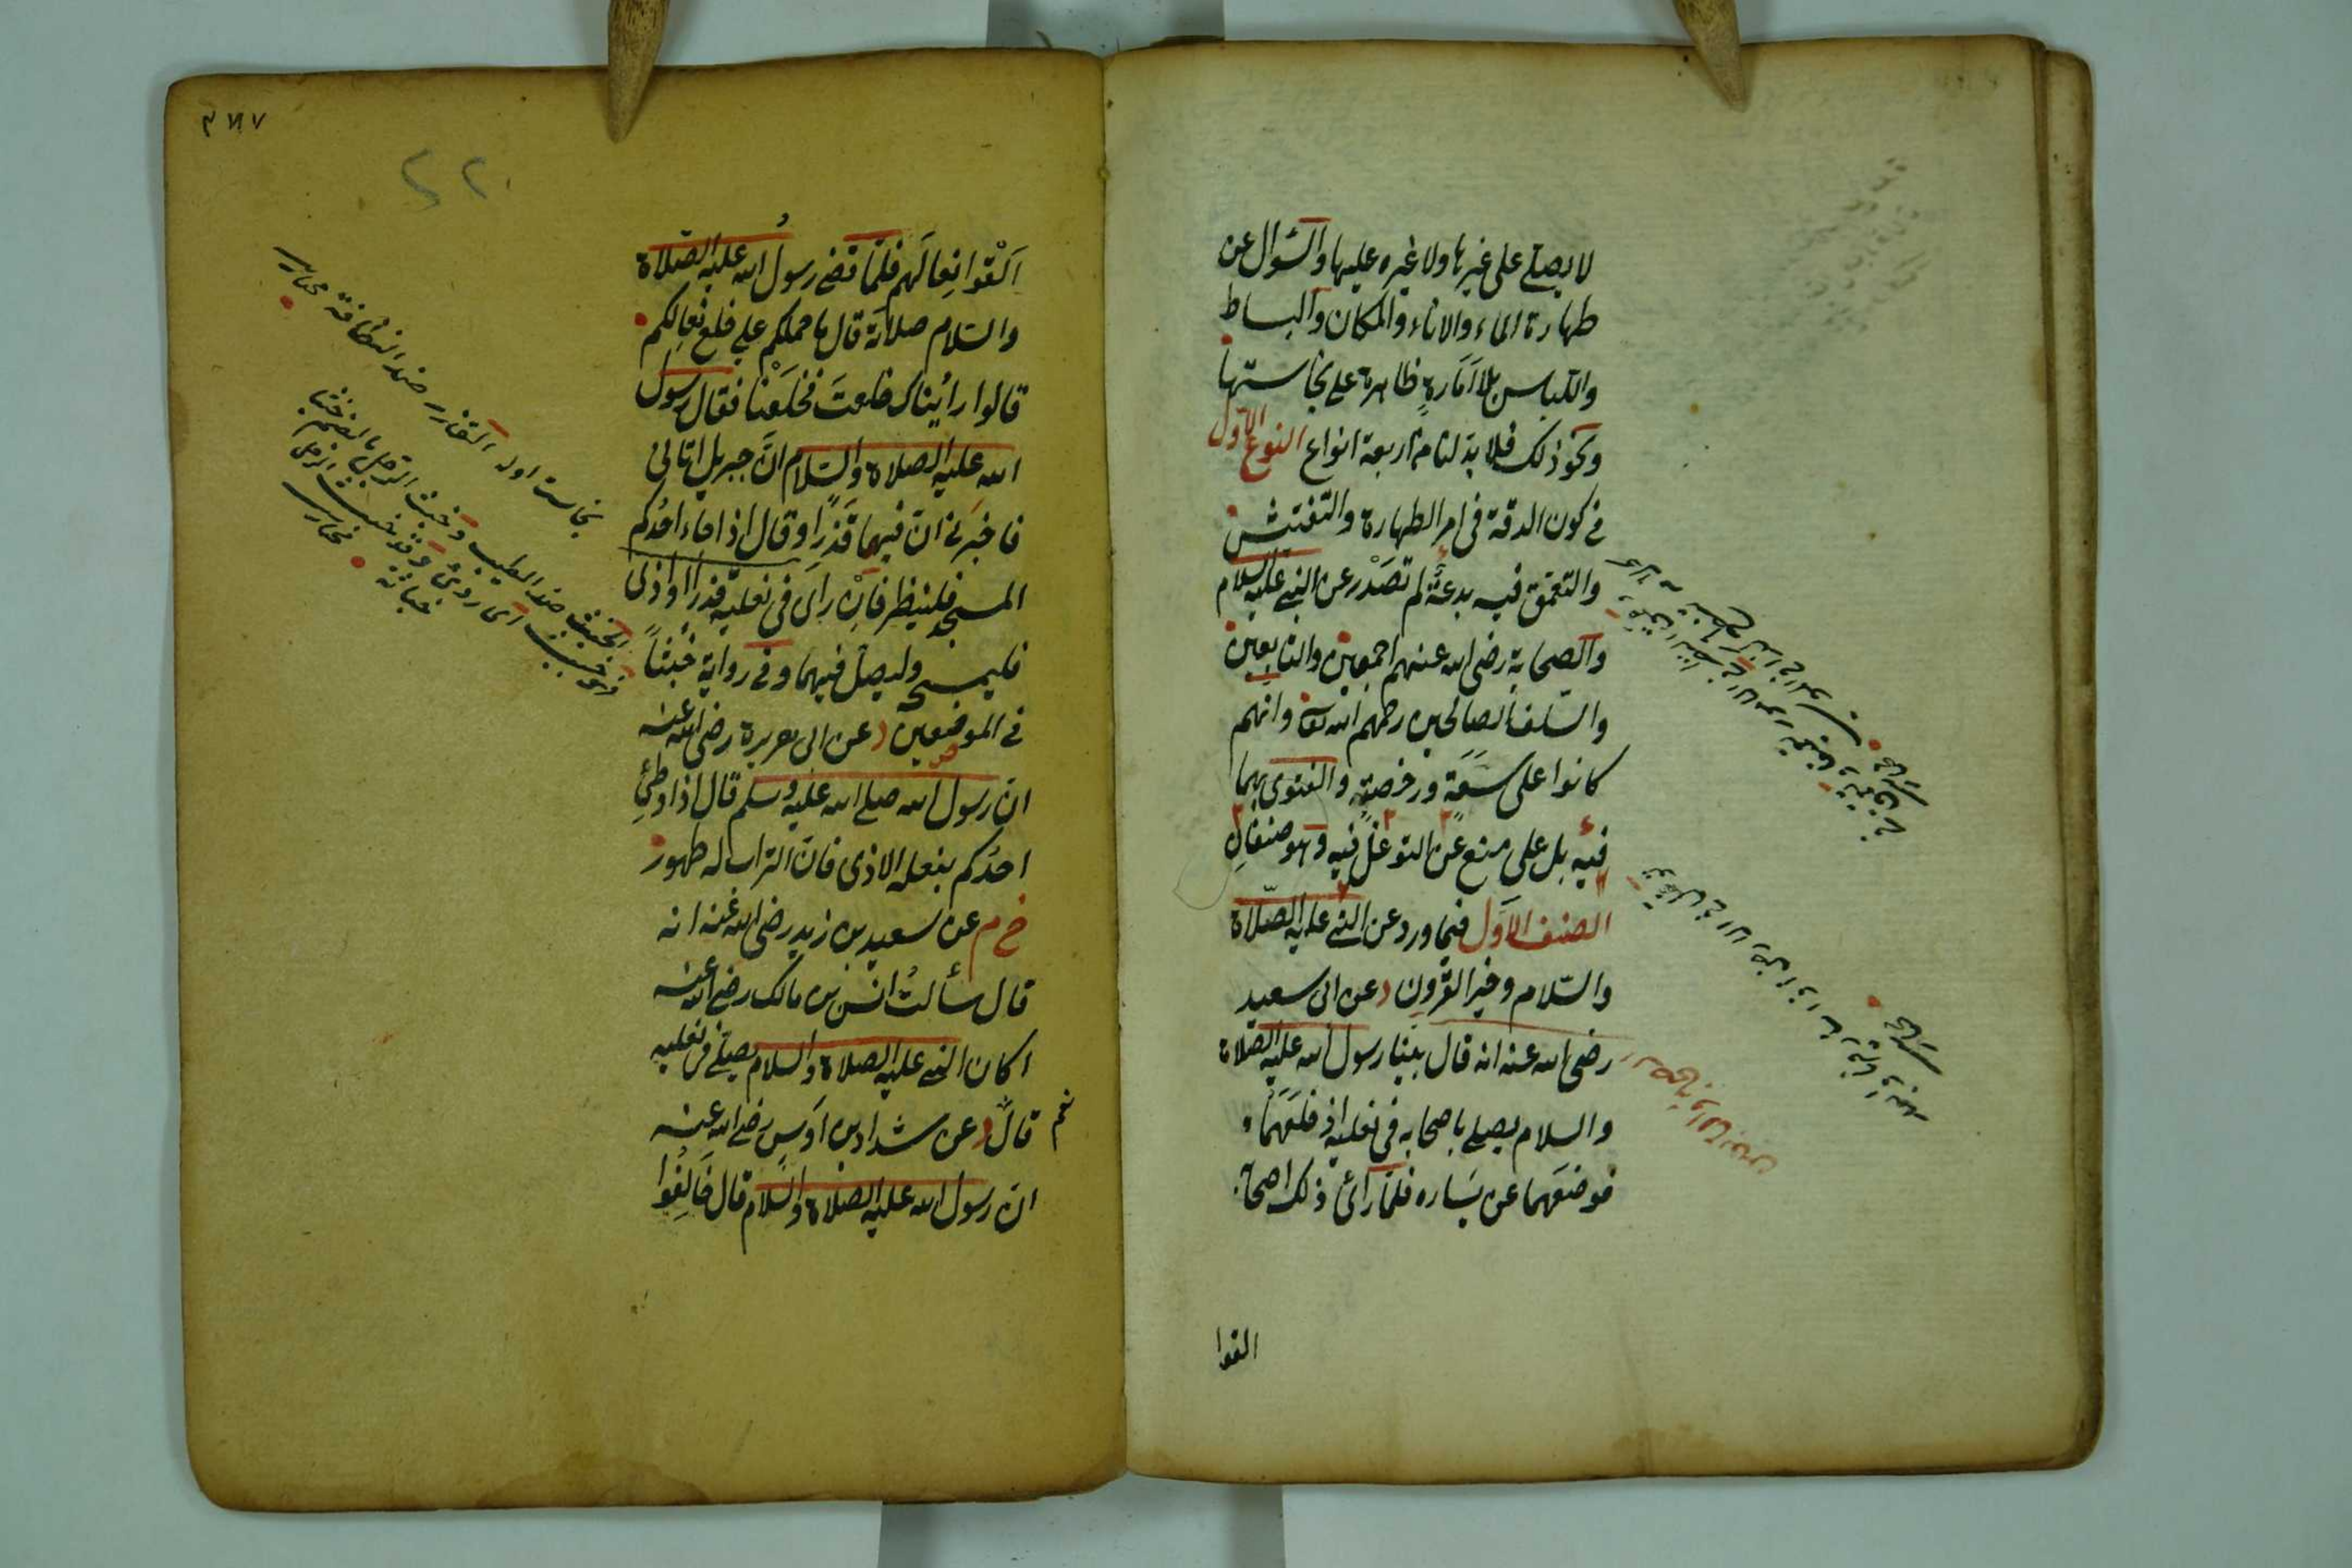 لا يصلى على غيرها ولا غيره عليها والسّؤال عن
طهارة الماء والاناء والمكان والبساط
واللباس بلا اَمَارةٍ ظاهرة على نجاستها
ونحو ذلك فلا بدّ لنا من اربعة انواع النوع الاول
في كون الدقة في امر الطهارة والتفتيش
والتعمّق فيه بدعةً لم تَصْدر عن النبي عليه السلام
والصحابة رضي الله عنهم اجمعين والتابعين
والسّلف الصالحين رحمهم الله تعا وانهم
كانوا على سَعَةٍ ورخصةٍ والفتوى بهما
فيه بل على منع عن التوغل فيه وهو صنفانِ
الصنف الاَوّل فيما ورد عن النبي عليه الصّلاة
والسّلام وخير القرون د عن ابى سعيد
رضى الله عنه انه قال بينا رسول الله عليه الصلاة
والسلام يصلى باصحابه في نعليه اذ خلعَهما
فوضعَهما عن يَساره فلمّا رأى ذلك اصحابه
القوا
اَلْقوا نِعالَهم فلمّا قضى رسولُ الله عليه الصّلاة
والسّلام صلاتَه قال ما حملكم على خلع نعالكم
قالوا رأيناك خلعتَ فخلَعْنا فقال رسول
الله عليه الصلاة والسّلام انَّ جبريل اتانى
فاخبَرنى انّ فيهما قَذَرًا وقال اذا جاء احدُكم
المسجد فلينظر فاِنْ راَى في نعليه قذرا او اذى
فليمسحه وليصلّ فيهما وفي رواية خَبَثاً
في الموضعين د عن ابى هريرة رضى الله عنه
انّ رسول الله صلى الله عليه وسلم قال اذا وطِئَ
احدُكم بنعله الاذى فانّ التراب له طهور
خ م عن سعيد بن زيد رضى الله عنه انه
قال سألتُ انس بن مالك رضى الله عنه
اكان النبي عليه الصلاة والسلام يصلّى في نعليه
قال نعم د عن شداد بن اَوسٍ رضى الله عنه
انّ رسول الله عليه الصلاة والسّلام قال خَالِفُوا
القذر ضد النظافة
الخبث ضد الطيب وخبث الرجل بالضم خبثا
فهو خبيث اى ردئ